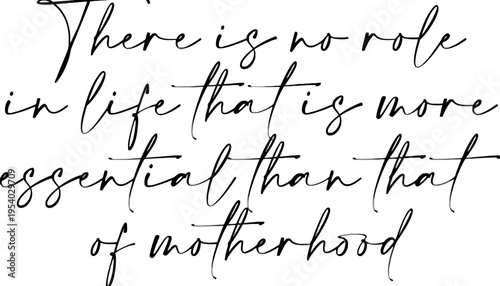 There is no role
in life that is more
essential than that
of motherhood
Adobe Stock | #1954029709